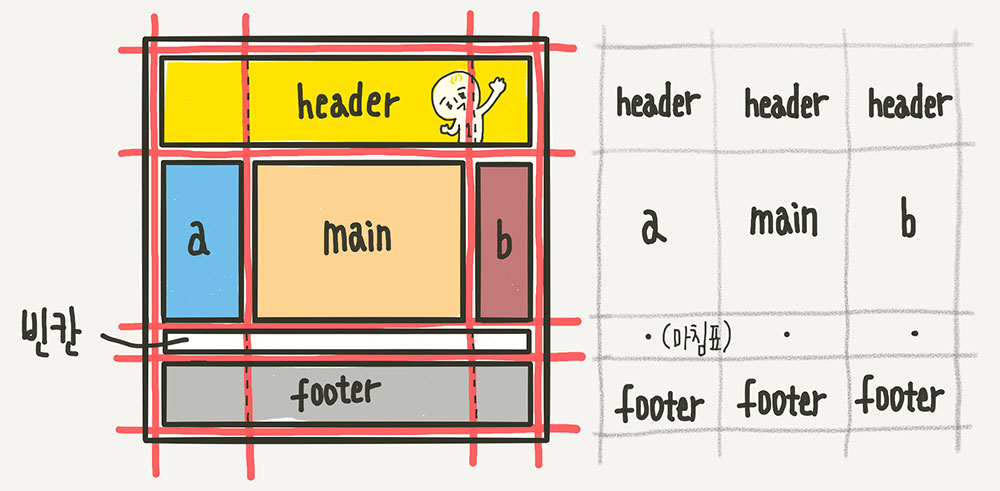 header
a main b
빈칸
footer
header header header
a main b
· (마침표) · ·
footer footer footer